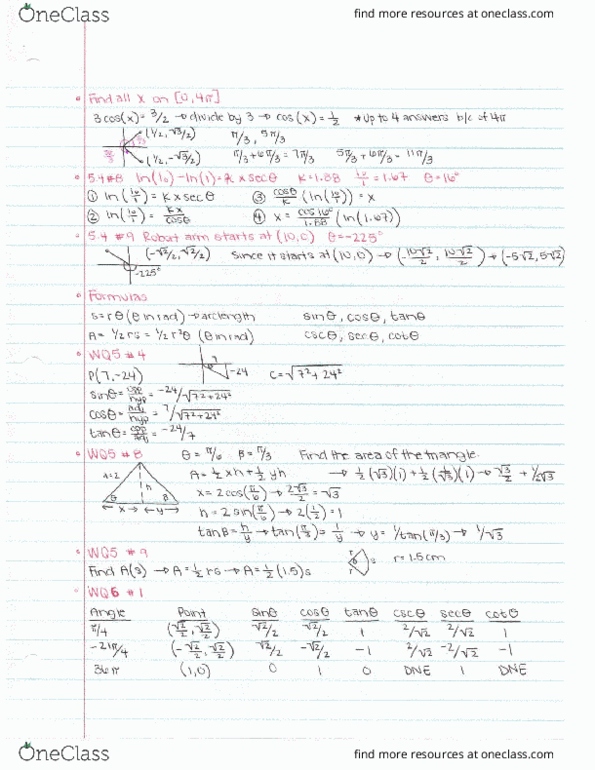 OneClass find more resources at oneclass.com
Find all x on [0, 4π]
3cos(x) = 3/2 → divide by 3 → cos(x) = 1/2 *up to 4 answers b/c of 4π
(1/2, √3/2) π/3, 5π/3
(1/2, -√3/2) π/3 + 6π/3 = 7π/3 5π/3 + 6π/3 = 11π/3
5.4 #8 ln(I₀) - ln(I) = k x secθ k = 1.88 I₀/I = 1.67 θ = 16°
① ln(I₀/I) = k x secθ ③ cosθ/k (ln(I₀/I)) = x
② ln(I₀/I) = kx/cosθ ④ x = cos16°/1.88 (ln(1.67))
5.4 #9 Robot arm starts at (10,0) θ = -225°
(-√2/2, √2/2) Since it starts at (10,0) → (-10√2/2, 10√2/2) → (-5√2, 5√2)
-225°
Formulas
s = rθ (θ in rad) → arc length sinθ, cosθ, tanθ
A = 1/2 rs = 1/2 r²θ (θ in rad) cscθ, secθ, cotθ
WQ5 #4
P(7, -24) 7 -24 c = √7² + 24²
sinθ = opp/hyp = -24/√7² + 24²
cosθ = adj/hyp = 7/√7² + 24²
tanθ = opp/adj = -24/7
WQ5 #8 θ = π/6 β = π/3 Find the area of the triangle.
A = 1/2 xh + 1/2 yh → 1/2 (√3)(1) + 1/2 (1/√3)(1) → √3/2 + 1/2√3
a=2 h θ β x = 2cos(π/6) → 2√3/2 = √3
← x → ← y → h = 2sin(π/6) → 2(1/2) = 1
tanβ = h/y → tan(π/3) = 1/y → y = 1/tan(π/3) → 1/√3
WQ5 #9 r s r = 1.5cm
Find A(s) → A = 1/2 rs → A = 1/2 (1.5)s
WQ6 #1
Angle Point sinθ cosθ tanθ cscθ secθ cotθ
π/4 (√2/2, √2/2) √2/2 √2/2 1 2/√2 2/√2 1
-21π/4 (-√2/2, √2/2) √2/2 -√2/2 -1 2/√2 -2/√2 -1
36π (1,0) 0 1 0 DNE 1 DNE
OneClass find more resources at oneclass.com